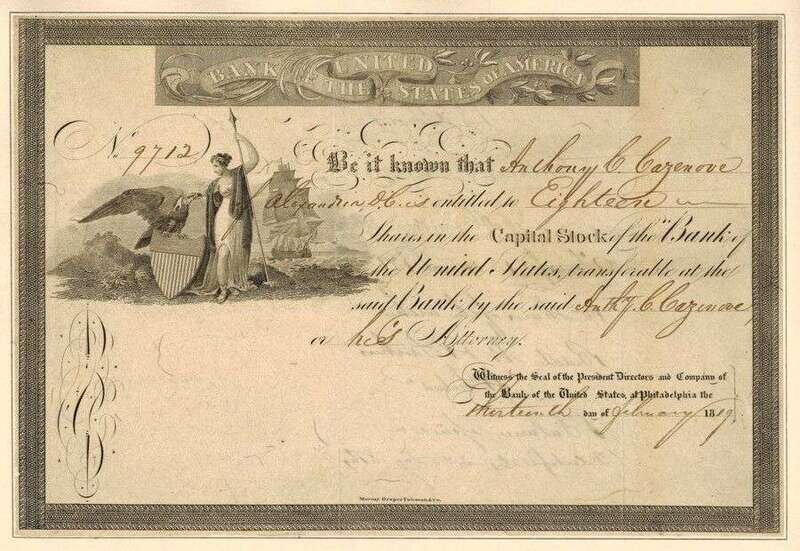 BANK OF THE UNITED STATES OF AMERICA
No. 9712
Be it known that Anthony C. Cazenove
Alexandria D.C. is entitled to Eighteen
Shares in the Capital Stock of the "Bank of
the United States, transferable at the
said Bank by the said Anthy. C. Cazenove
or his Attorney.
Witness the Seal of the President Directors and Company of
the Bank of the United States, at Philadelphia the
thirteenth day of february 1819
Murray Draper Fairman & Co.